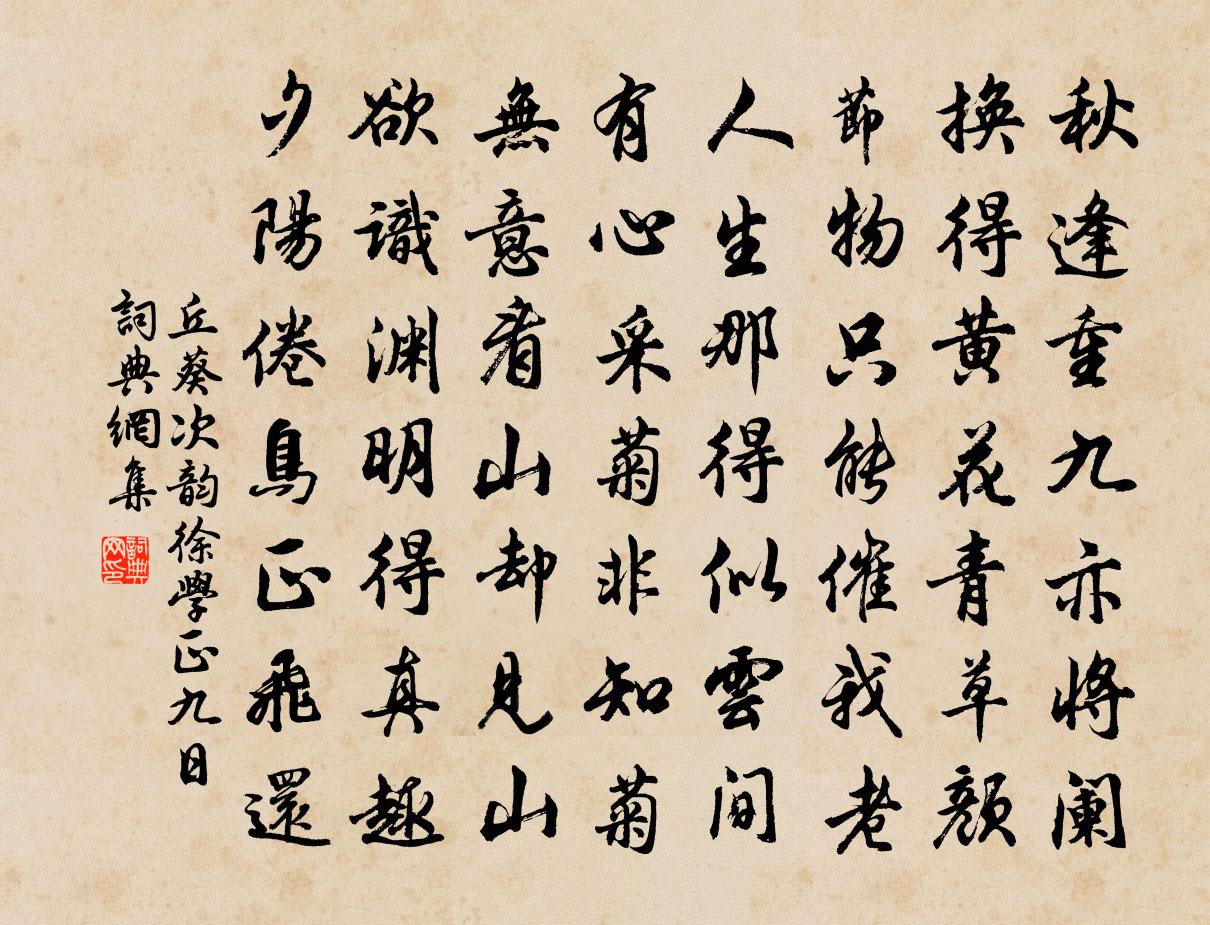 秋逢重九亦將闌
換得黃花青草顏
節物只能催我老
人生那得似雲間
有心采菊非知菊
無意看山却見山
欲識淵明得真趣
夕陽倦鳥正飛還
丘葵次韵徐學正九日
詞典網集
詞典
网印